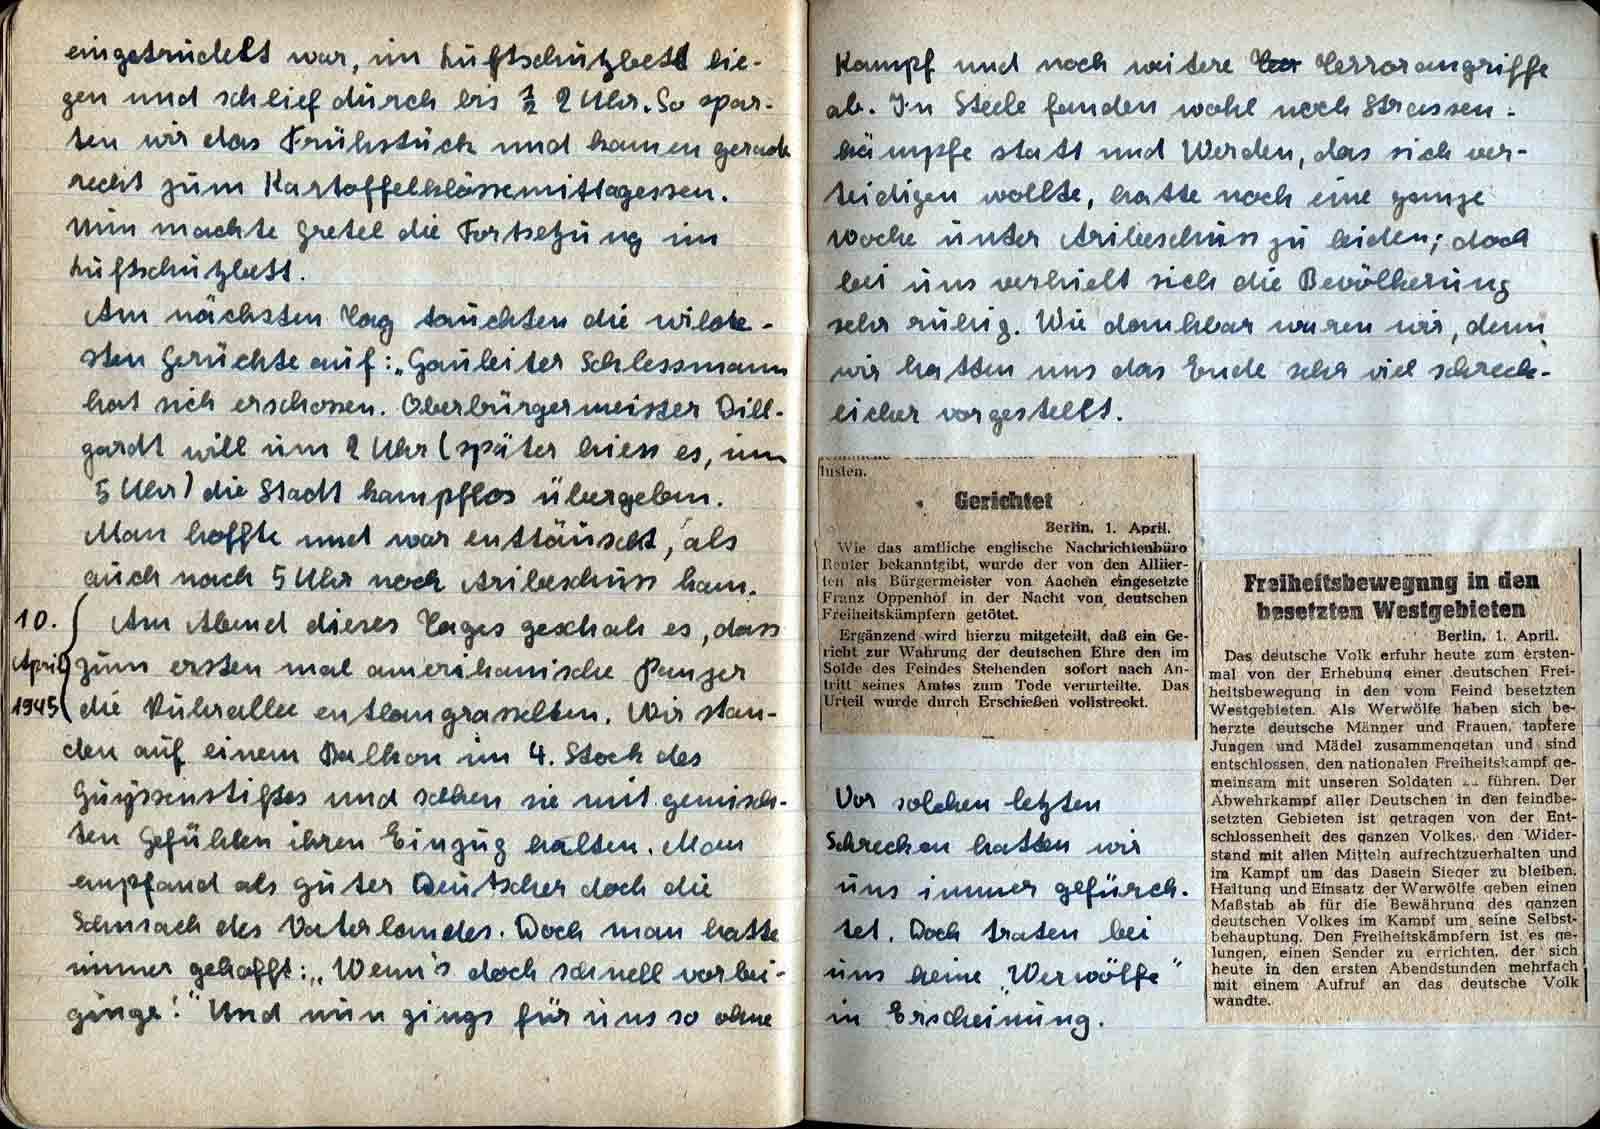 eingetrudelt war, im Luftschutzbett lie-
gen und schlief durch bis ½ 2 Uhr. So spar-
ten wir das Frühstück und kamen gerade
recht zum Kartoffelklössemittagessen.
Nun machte Gretel die Fortsetzung im
Luftschutzbett.
Am nächsten Tag tauchten die wilde-
sten Gerüchte auf: „Gauleiter Schlessmann
hat sich erschossen. Oberbürgermeister Dill-
gardt will um 2 Uhr (später hiess es, um
5 Uhr) die Stadt kampflos übergeben.
Man hoffte und war enttäuscht, als
auch nach 5 Uhr noch Aribeschuss kam.
10.
April
1945
Am Abend dieses Tages geschah es, dass
zum ersten mal amerikanische Panzer
die Ruhrallee entlangrasselten. Wir stan-
den auf einem Balkon im 4. Stock des
Huyssenstiftes und sahen sie mit gemisch-
ten Gefühlen ihren Einzug halten. Man
empfand als guter Deutscher doch die
Schmach des Vaterlandes. Doch man hatte
immer gehofft: „Wenn's doch schnell vorbei-
ginge!" Und nun gings für uns so ohne
Kampf und noch weitere Terrorangriffe
ab. In Steele fanden wohl noch Strassen-
kämpfe statt und Werden, das sich ver-
teidigen wollte, hatte noch eine ganze
Woche unter Aribeschuss zu leiden; doch
bei uns verhielt sich die Bevölkerung
sehr ruhig. Wie dankbar waren wir, denn
wir hatten uns das Ende sehr viel schreck-
licher vorgestellt.
lusten.
Gerichtet
Berlin, 1. April.
Wie das amtliche englische Nachrichtenbüro
Reuter bekanntgibt, wurde der von den Alliier-
ten als Bürgermeister von Aachen eingesetzte
Franz Oppenhof in der Nacht von deutschen
Freiheitskämpfern getötet.
Ergänzend wird hierzu mitgeteilt, daß ein Ge-
richt zur Wahrung der deutschen Ehre den im
Solde des Feindes Stehenden sofort nach An-
tritt seines Amtes zum Tode verurteilte. Das
Urteil wurde durch Erschießen vollstreckt.
Vor solchen letzten
Schrecken hatten wir
uns immer gefürch-
tet. Doch traten bei
uns keine „Werwölfe"
in Erscheinung.
Freiheitsbewegnng in den
besetzten Westgebieten
Berlin, 1. April.
Das deutsche Volk erfuhr heute zum ersten-
mal von der Erhebung einer deutschen Frei-
heitsbewegung in den vom Feind besetzten
Westgebieten. Als Werwölfe haben sich be-
herzte deutsche Männer und Frauen, tapfere
Jungen und Mädel zusammengetan und sind
entschlossen, den nationalen Freiheitskampf ge-
meinsam mit unseren Soldaten führen. Der
Abwehrkampf aller Deutschen in den feindbe-
setzten Gebieten ist getragen von der Ent-
schlossenheit des ganzen Volkes, den Wider-
stand mit allen Mitteln aufrechtzuerhalten und
im Kampf um das Dasein Sieger zu bleiben.
Haltung und Einsatz der Werwölfe geben einen
Maßstab ab für die Bewährung des ganzen
deutschen Volkes im Kampf um seine Selbst-
behauptung. Den Freiheitskämpfern ist es ge-
lungen, einen Sender zu errichten, der sich
heute in den ersten Abendstunden mehrfach
mit einem Aufruf an das deutsche Volk
wandte.